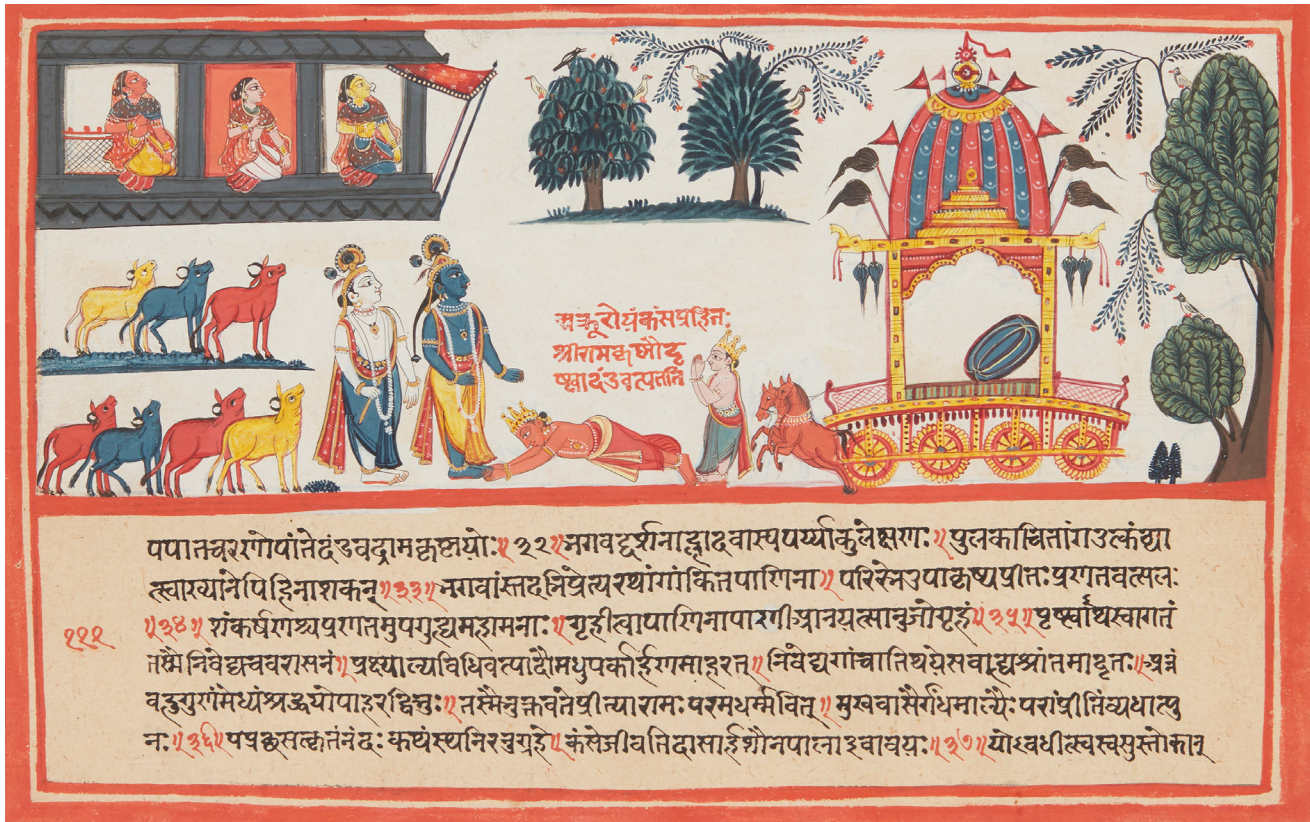 अक्रूरोयंकंसप्रहितः
श्रीरामकृष्णौदृ
ष्ट्वादंडवत्पतति
पपातचरणोपांतेदंडवद्रामकृष्णयोः॥३२॥भगवद्दर्शनाह्लादवास्पपर्य्याकुलेक्षणः॥पुलकाचितांगउत्कंठ्या
त्स्वाख्यानेपिहिनाशकत्॥३३॥भगवांस्तदभिप्रेत्यरथांगांकितपाणिना॥परिरेभेउपाकृष्यप्रीतःप्रणतवत्सलः
१११
॥३४॥संकर्षणश्चप्रणतमुपगुह्यमहामनाः॥गृहीत्वापाणिनापाणीप्रानयत्सानुजोगृहं॥३५॥पृष्ट्वाथस्वागतं
तस्मैनिवेद्यचवरासनं॥प्रक्ष्याल्यविधिवत्पादौमधुपर्कार्हणमाहरत्॥निवेद्यगांचातिथयेसंवाह्यश्रांतमादृतः॥अन्नं
वहुगुणंमेध्यंश्रद्धयोपाहरद्विभुः॥तस्मैभुक्तवतेप्रीत्यारामःपरमधर्म्मवित्॥मुखवासैर्गंधमाल्यैःपरांप्रीतिंव्यधात्पु
नः॥३६॥पप्रछसत्कृतंनंदःकथंस्थनिरनुग्रहे॥कंसेजीवतिदासार्हशौनपालाइवावयः॥३७॥योवधीत्स्वस्वसुस्तोकान्